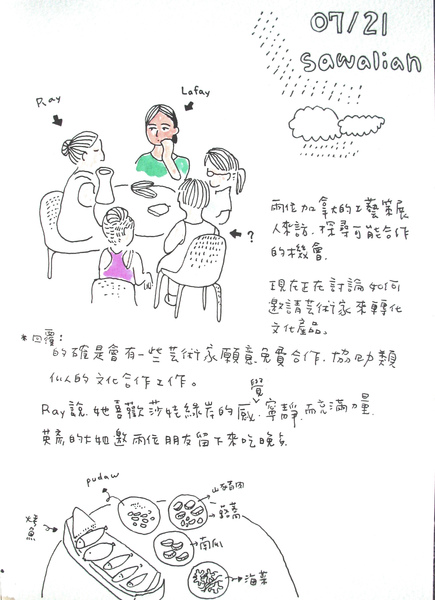 07/21
sawalian
Ray
Lafay
?
兩位加拿大的工藝策展
人來訪.探尋可能合作
的機會.
現在正在討論如何
邀請芸術家來轉化
文化產品。
*回覆:
的確是會有一些芸術家願意免費合作.協助類
似的文化合作工作。
覺
Ray說.她喜歡莎娃綠岸的感.寧靜.而充滿力量.
她邀兩位朋友留下來吃晚餐
pudaw
烤魚
山苦瓜
南瓜
海菜